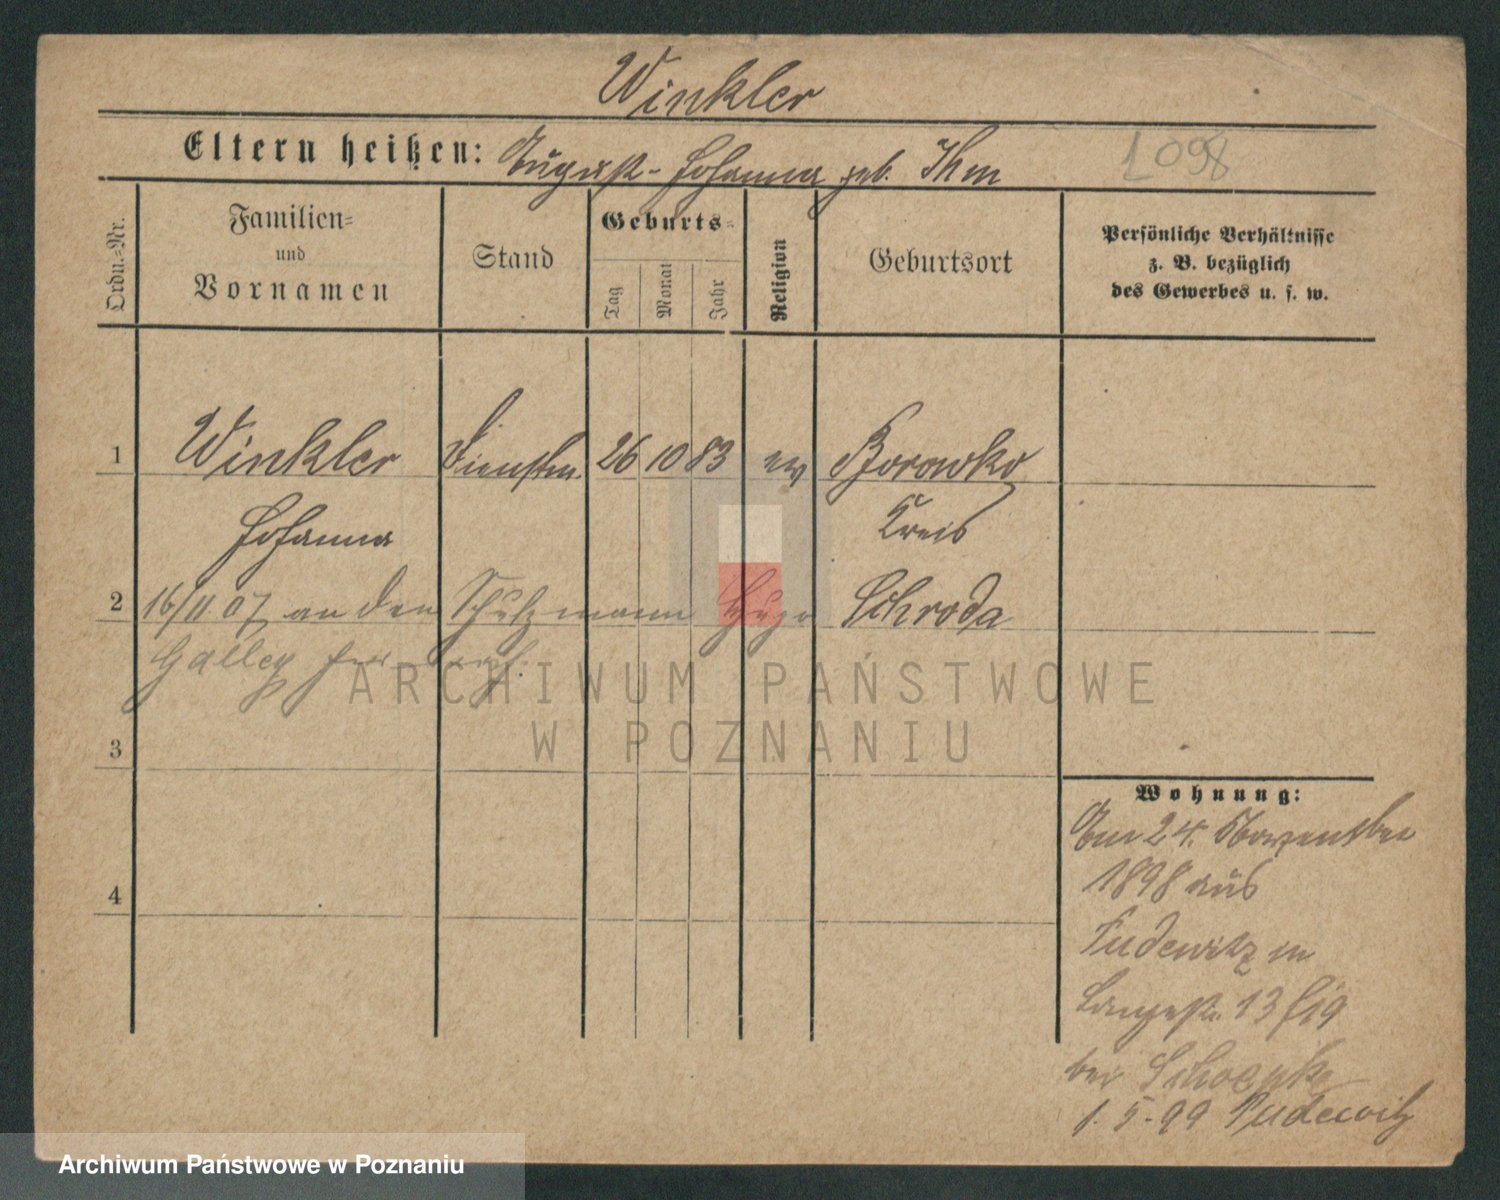 Winkler
Eltern heißen: August - Johanna geb. Ihm
1098
Ordn.-Nr.
Familien-
und
Vornamen
Stand
Geburts-
Tag
Monat
Jahr
Religion
Geburtsort
Persönliche Verhältnisse
z. B. bezüglich
des Gewerbes u. s. w.
1 Winkler Dienstm. 26 10 83 ev Borowko
Johanna Kreis
2 16/11 07 an den Schutzmann Hugo Schroda
Galley
ARCHIWUM PAŃSTWOWE
W POZNANIU
3
4
Wohnung:
Am 24. November
1898 aus
Pudewitz in
Langestr. 13
bei Schoepke
1.5.99 Pudewitz
Archiwum Państwowe w Poznaniu